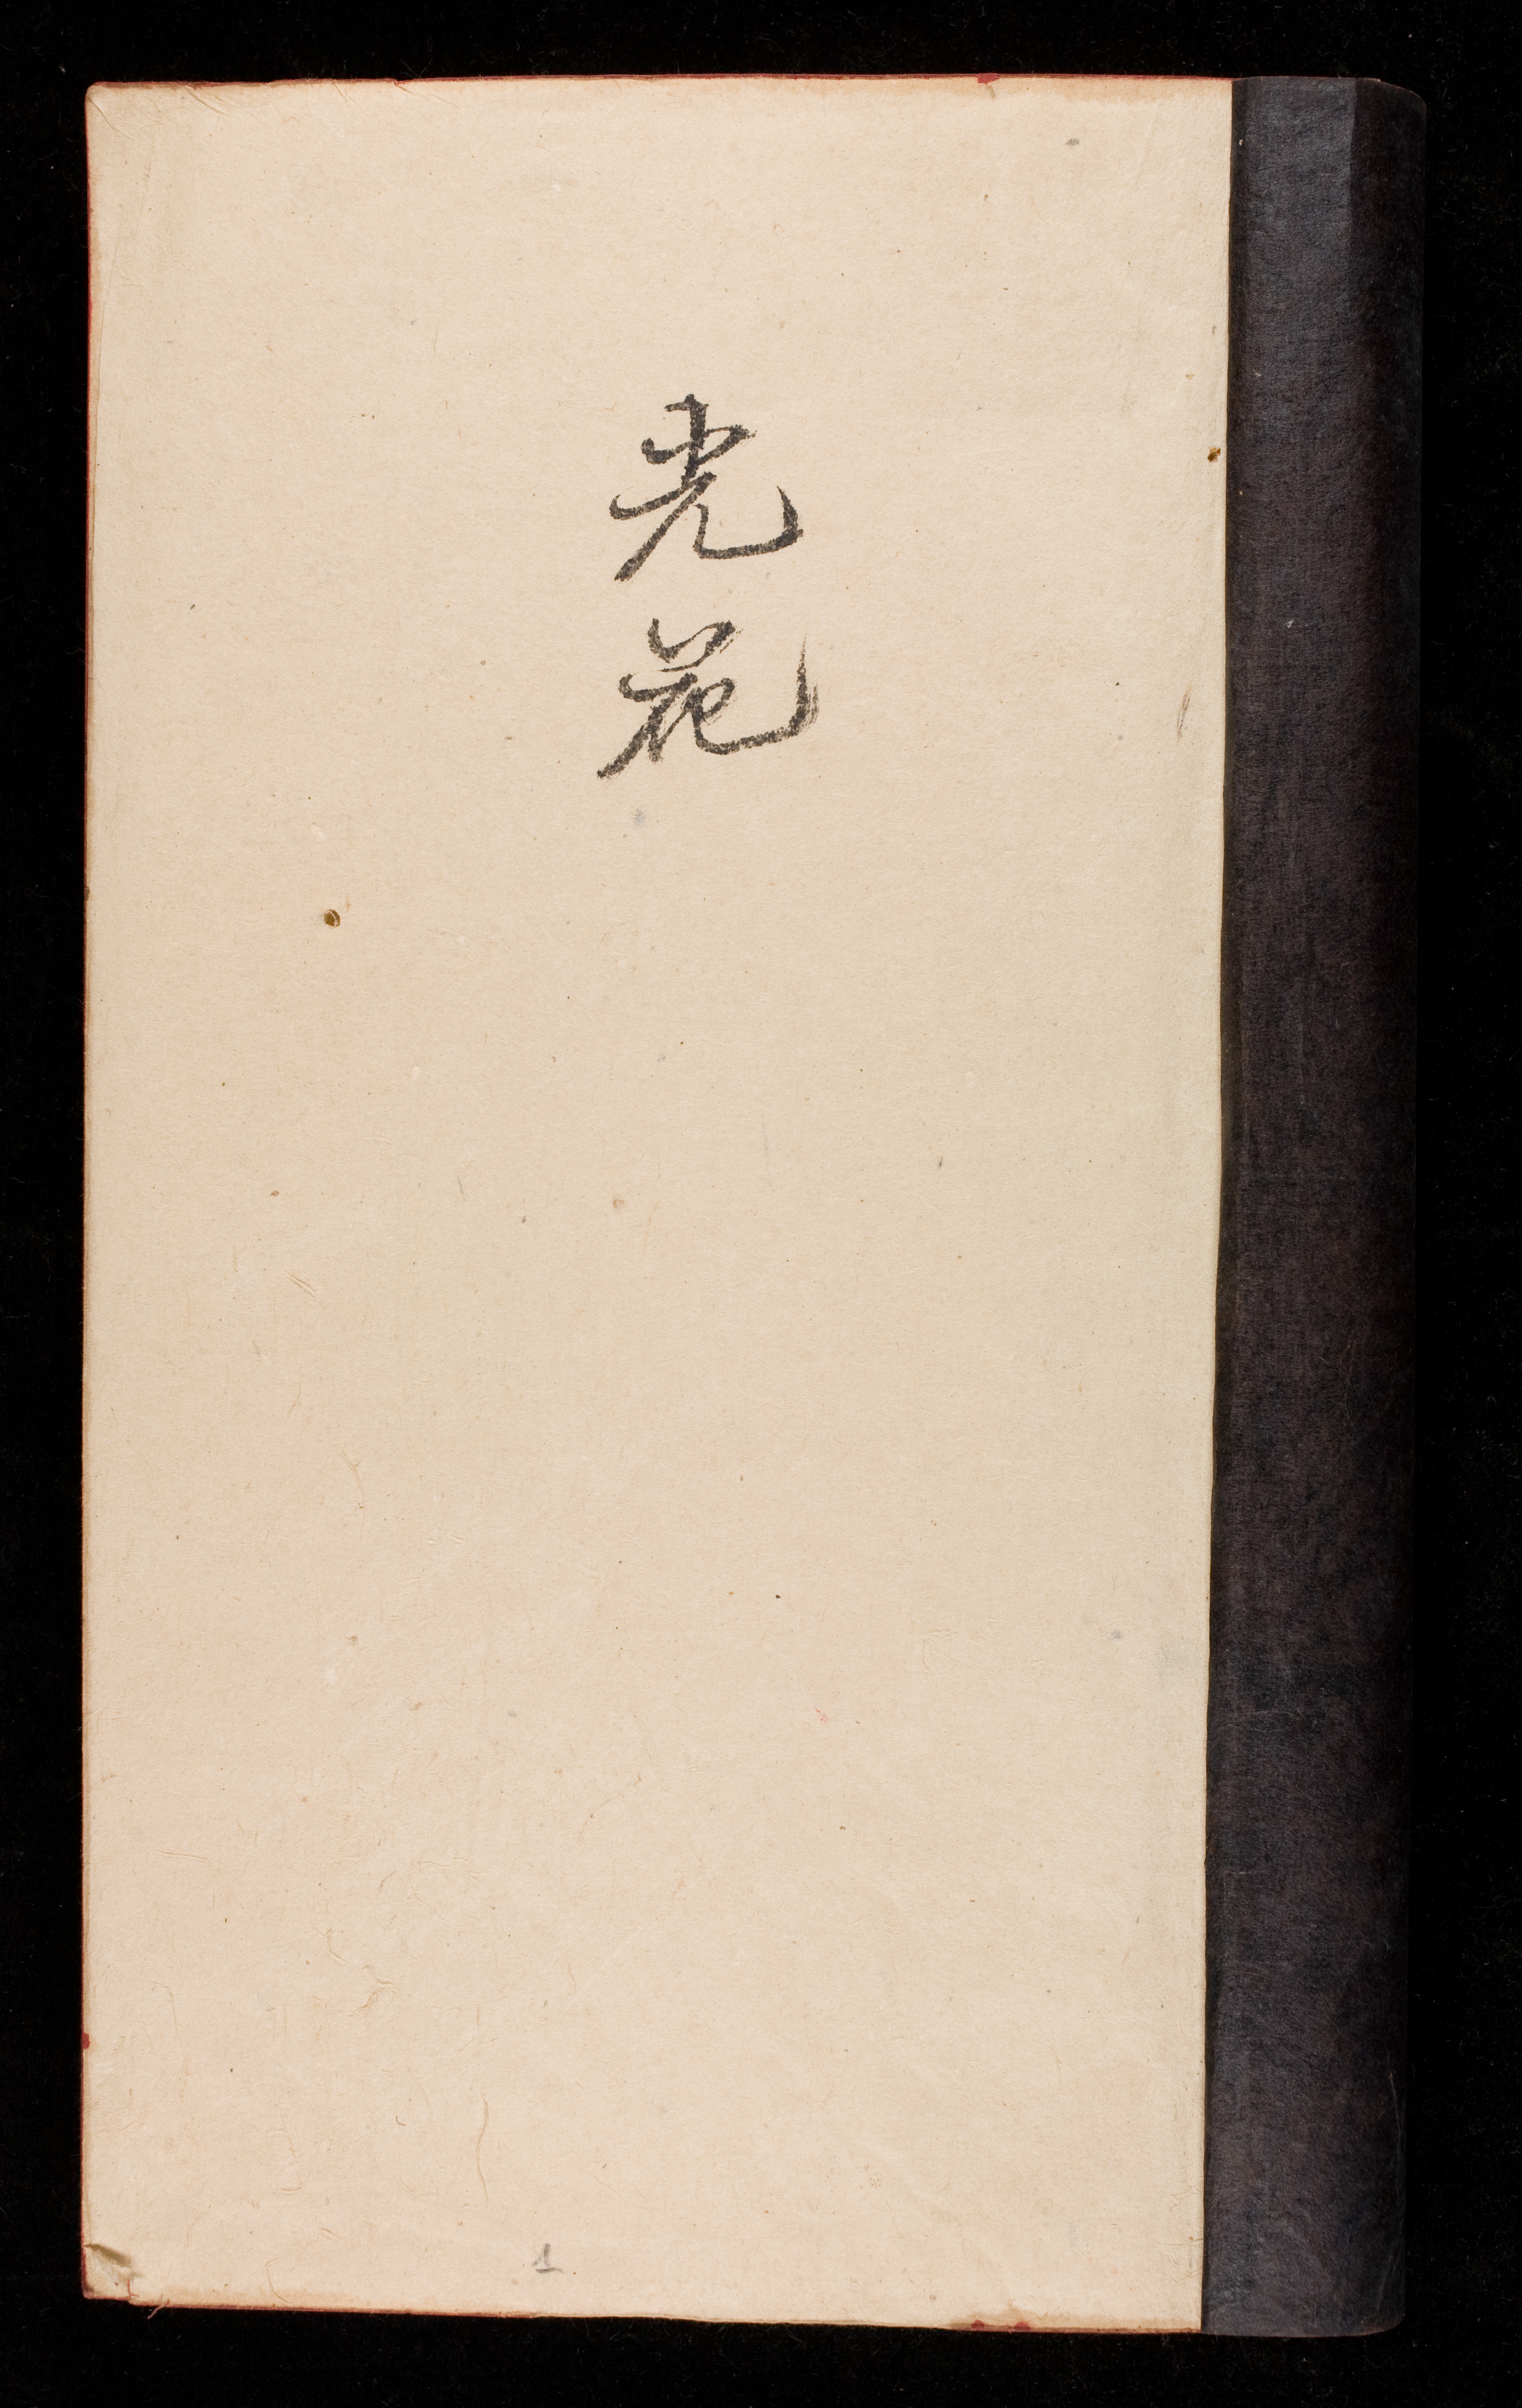 光
花
1